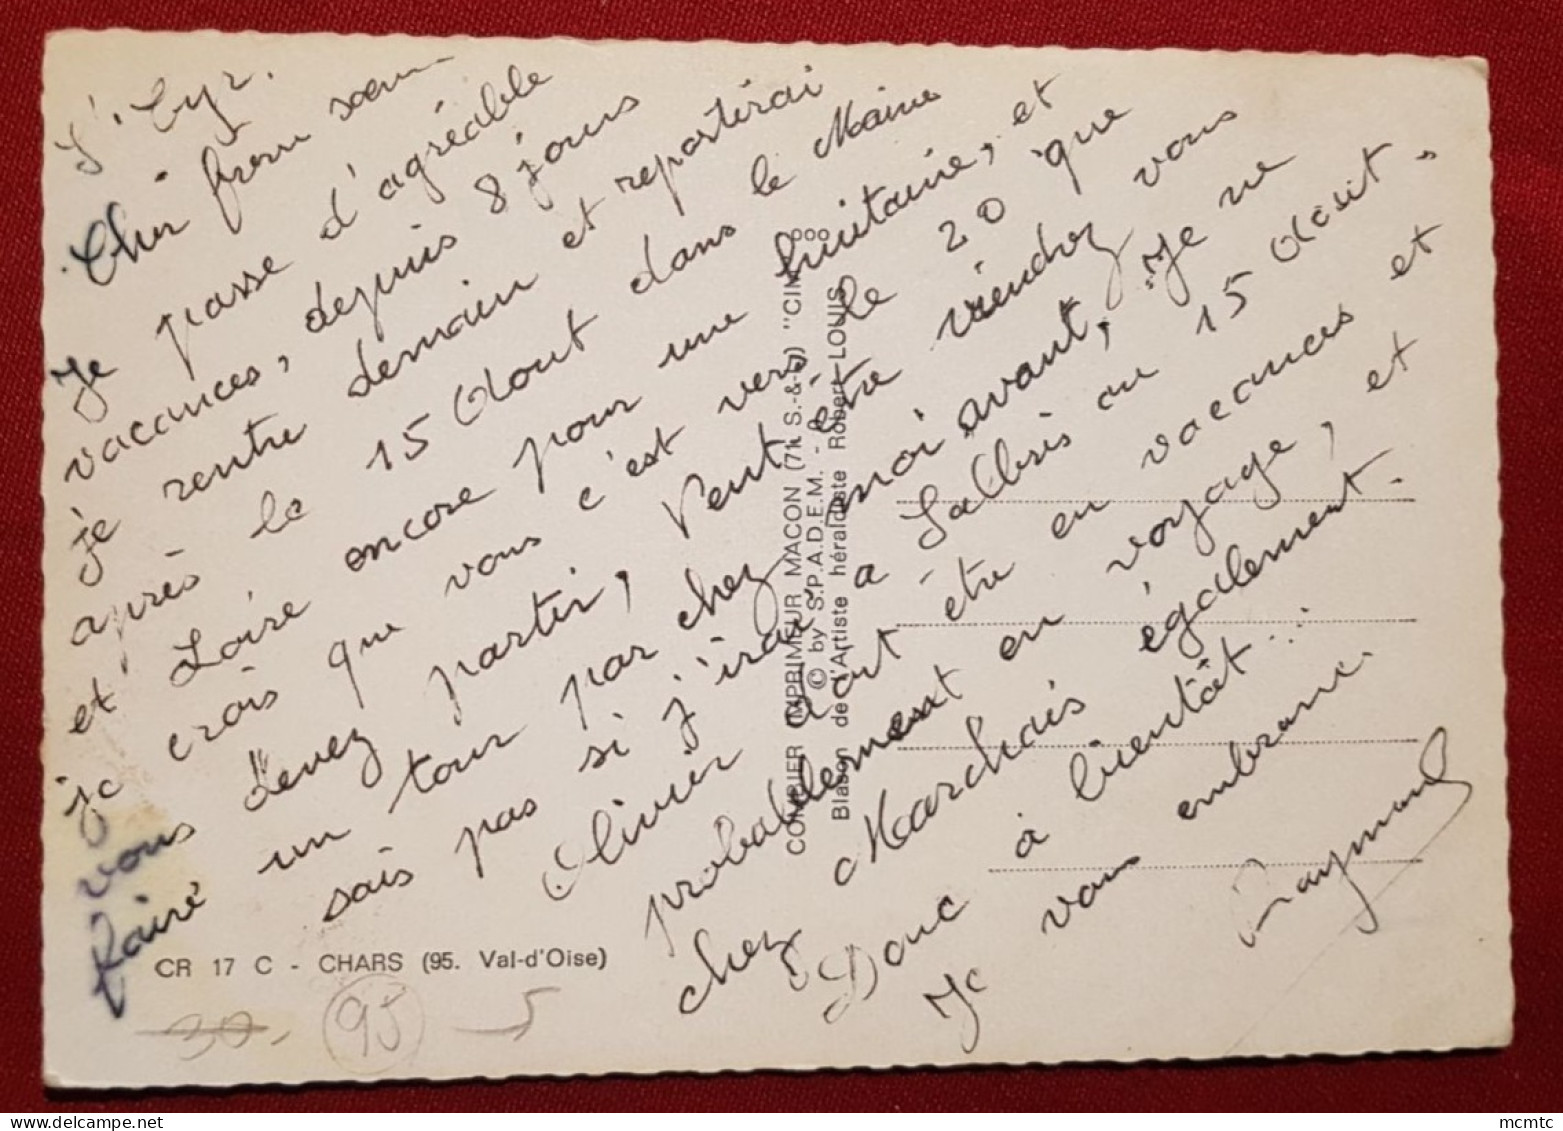 St. Cyr.
Cher frère sœur
Je passe d'agréable
vacances, depuis 8 jours
je rentre demain et repartirai
après le 15 Aout dans le Maine
et Loire encore pour une huitaine, et
je crois que vous c'est vers le 20 que
vous devez partir, Peut être viendrez vous
faire un tour par chez moi avant, Je ne
sais pas si j'irai a au 15 Aout.
Olivier doit être en vacances et
probablement en voyage, et
chez Marchais également.
Donc à bientôt....
Je vous embrasse.
Raymond
CR 17 C - CHARS (95. Val-d'Oise)
30. 95 5
COMBIER IMPRIMEUR MACON (71. S.-&-L.) "CIM"
© by S.P.A.D.E.M. -
Blason de l'Artiste héraldiste Robert LOUIS
mcmtc